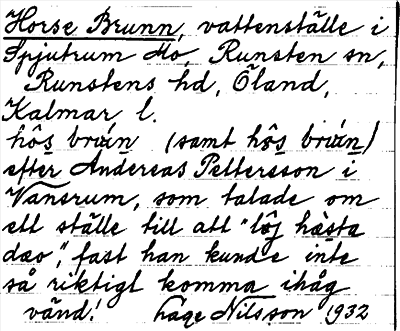 Horse Brunn, vattenställe i
Spjutrum Mo, Runsten sn,
Runstens hd, Öland,
Kalmar l.
hôs brún (samt hôs brún)
efter Andereas Pettersson i
Vansrum, som talade om
ett ställe till att "lôj hästa
dæo", fast han kunde inte
så riktigt komma ihåg
vänd! Håge Nilsson 1932